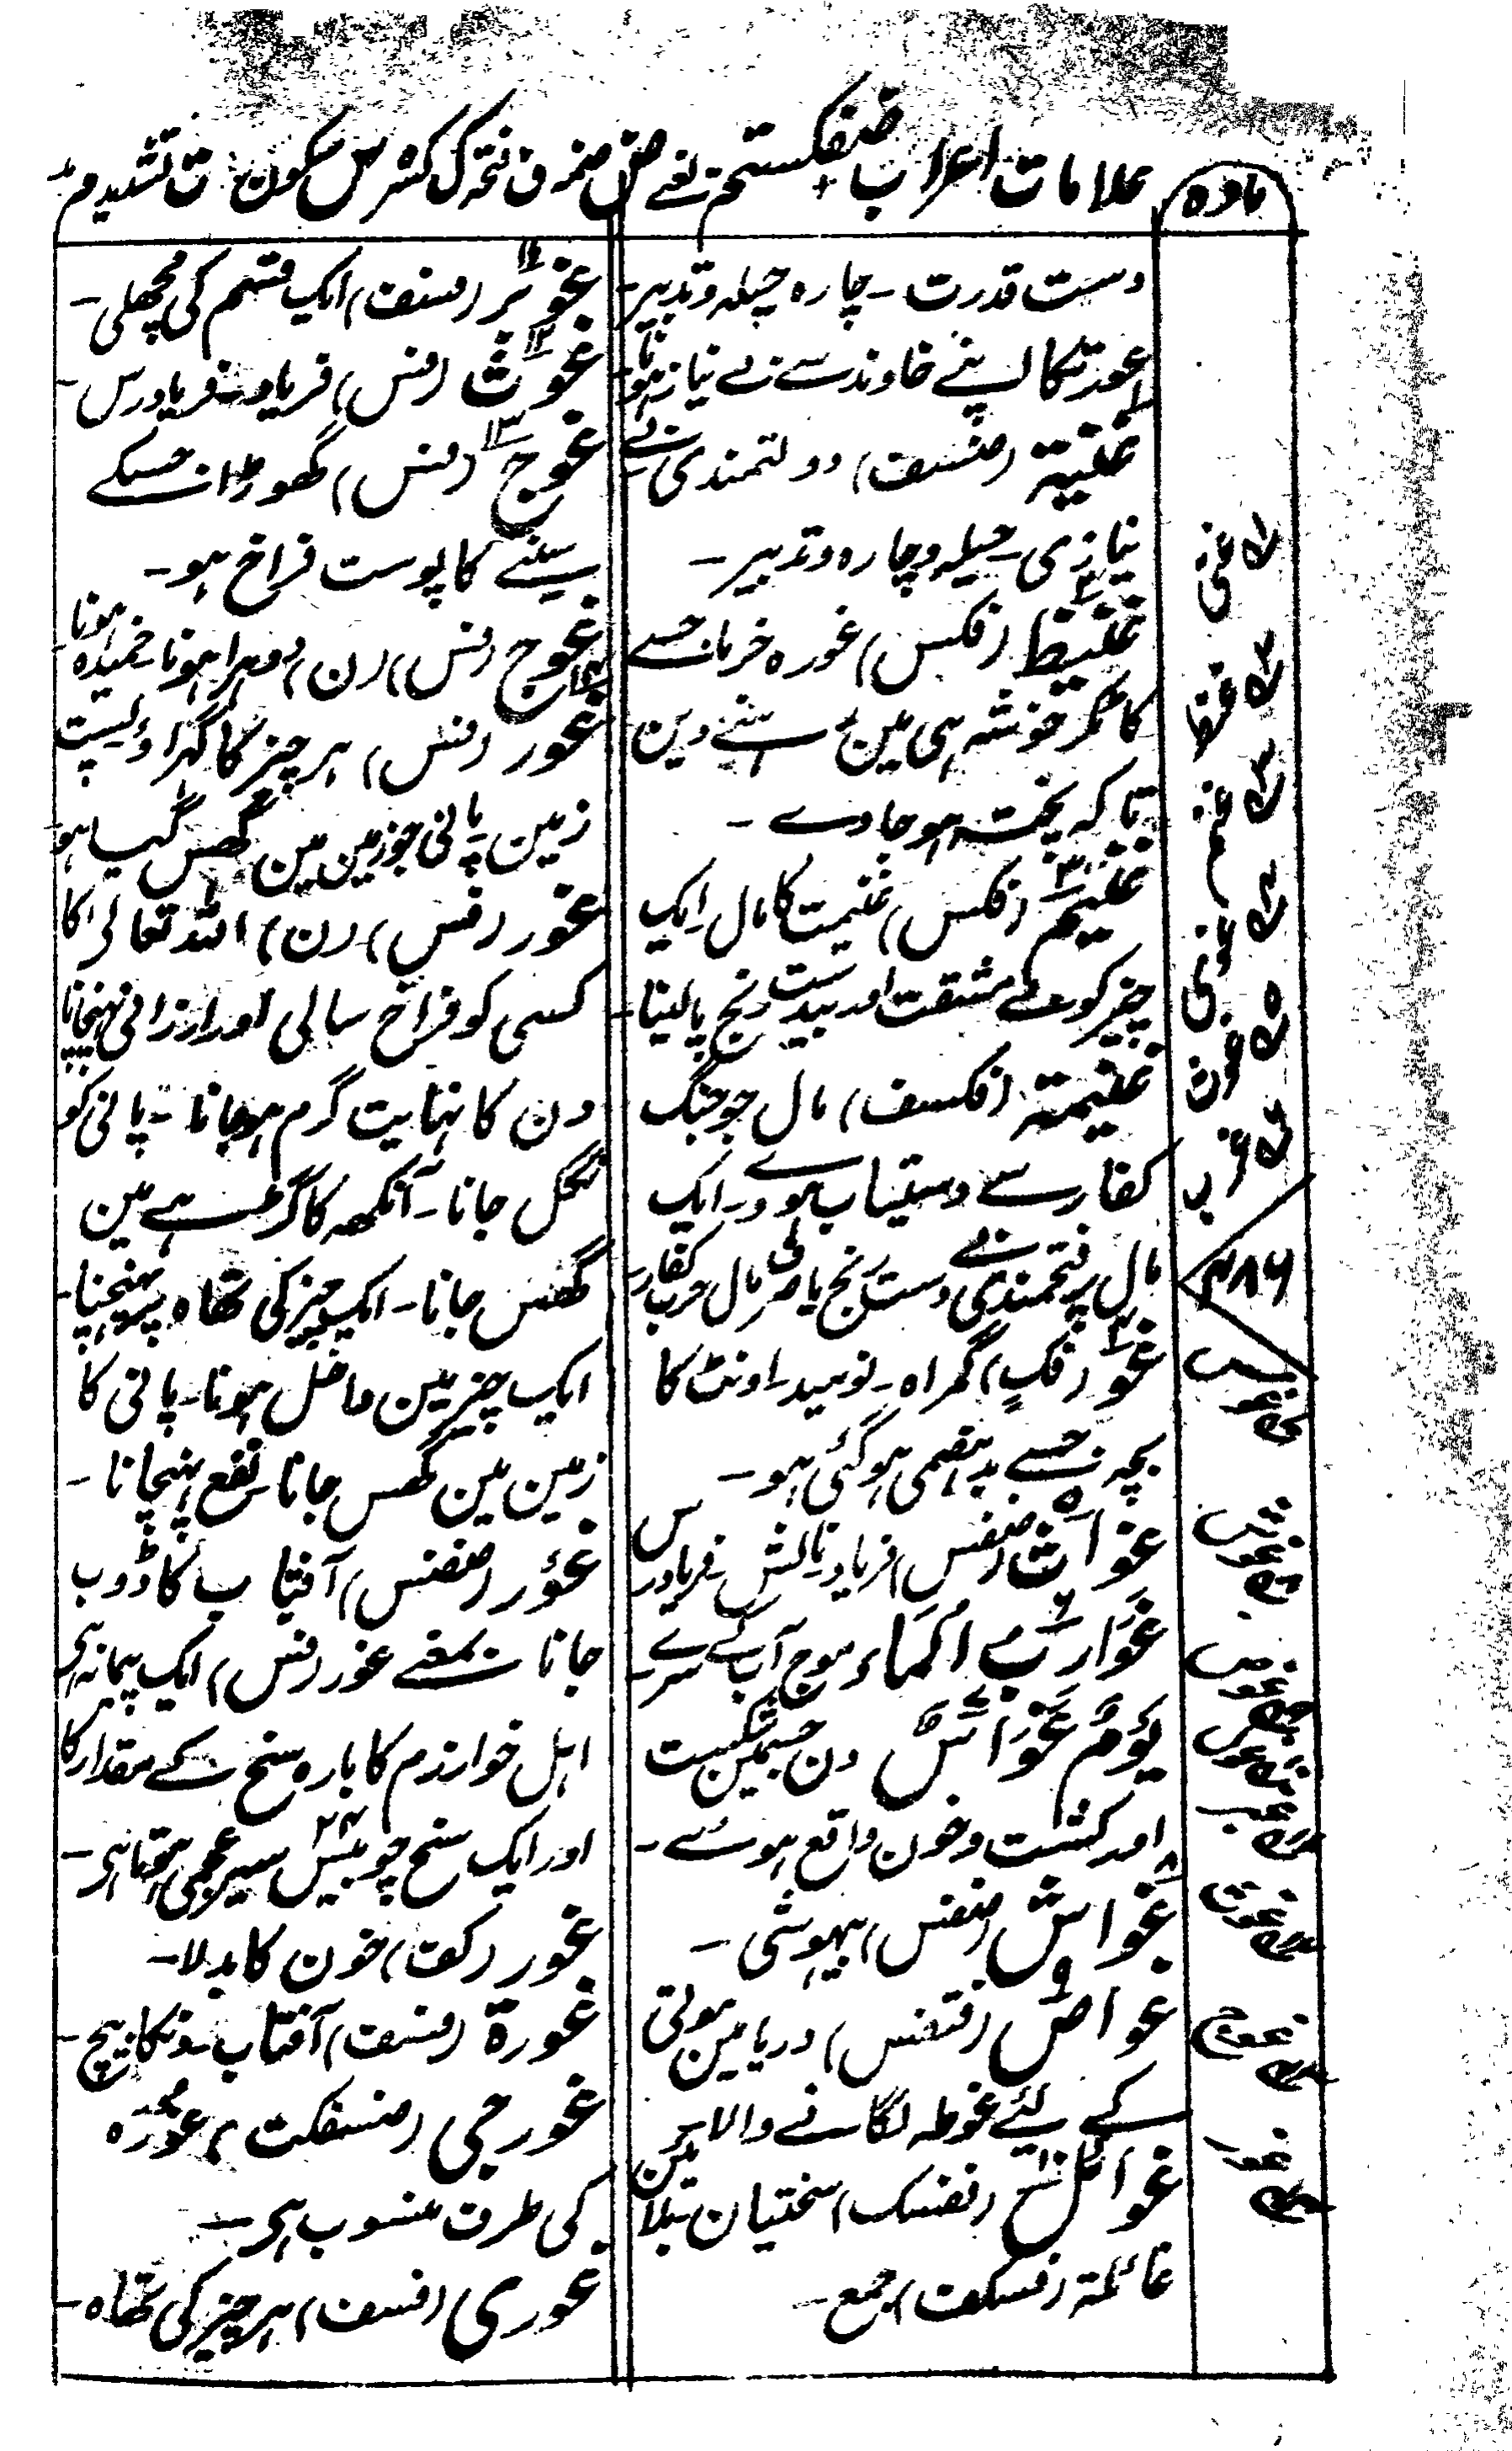 علامات اعراب ضفکستحم یعنے ض ضمہ ف فتحہ ک کسرہ س سکون ت تشدید م مد
مادہ
دست قدرت ۔ چارہ حیلہ و تدبیر ۔
عورت کا اپنے خاوند سے بے نیاز ہونا
غنیۃ (ضسف) دولتمندی بے
نیازی ۔ حیلہ و چارہ و تدبیر ۔
غنیظ (فکس) غورہ خرما جسے
کاٹکر خوشہ ہی مین رہنے دین
تاکہ پختہ ہو جاوے ۔
غنیم (فکس) غنیمت کا مال ایک
چیز کو بے مشقت اور بیدست رنج پا لینا
غنیمۃ (فکسف) مال جو جنگ
کفار سے دستیاب ہووے ۔ ایک
مال پر فتحمندی بے دست رنج یا صرف مال حرب کفار
غو (فک) گمراہ ۔ نومید ۔ اونٹ کا
بچہ جسے بد ہضمی ہو گئی ہو ۔
غواث (ضفس) فریاد نالش فریادرس
غوارب الماء موج آب کے سرے ۔
یوم غواش دن جسمین شکست
اور کشت و خون واقع ہوئے ۔
غواش (ضفس) بیہوشی ۔
غواص (فتفس) دریا مین موتی
کے لیئے غوطہ لگانے والا
غوائل (ففسک) سختیان بلائین
غائلۃ (فسکف) جمع ۔
غوبر (فسف) ایک قسم کی مچھلی ۔
غوث (فس) فریاد ۔ فریاد رس ۔
غوج (فس) گھوڑا جسکے
سینے کا پوست فراخ ہو ۔
غوج (فس) (ن) دوہرا ہونا خمیدہ ہونا
غور (فس) ہر چیز کا گہراؤ پست
زمین پانی جو زمین مین گھس گیا ہو
غور (فس) (ن) اللہ تعالی کا
کسی کو فراخ سالی اور ارزانی پہنچانا
دن کا نہایت گرم ہو جانا ۔ پانی کو
نگل جانا ۔ آنکھ کا گڑہے مین
گھس جانا ۔ ایک چیز کی تھاہ پر پہنچنا ۔
ایک چیز مین داخل ہونا ۔ پانی کا
زمین مین گھس جانا نفع پہنچانا ۔
غؤر (ضفس) آفتاب کا ڈوب
جانا بمعنے غور (فس) ایک پیمانہ ہی
اہل خوارزم کا بارہ سنح کے مقدار کا
اور ایک سنح چوبیس ۲۴ سیر عجمی ہوتا ہی ۔
غور (کف) خون کا بدلا ۔
غورۃ (فسف) آفتاب ۔ دنکا بیچ ۔
غورجی (ضسفکت) غورہ
کی طرف منسوب ہی ۔
غوری (فسف) ہر چیز کی تھاہ ۔
غنی
غنظ
غنم
غوی
غوث
غرب
غوش
غوص
غوث
غوج
غور